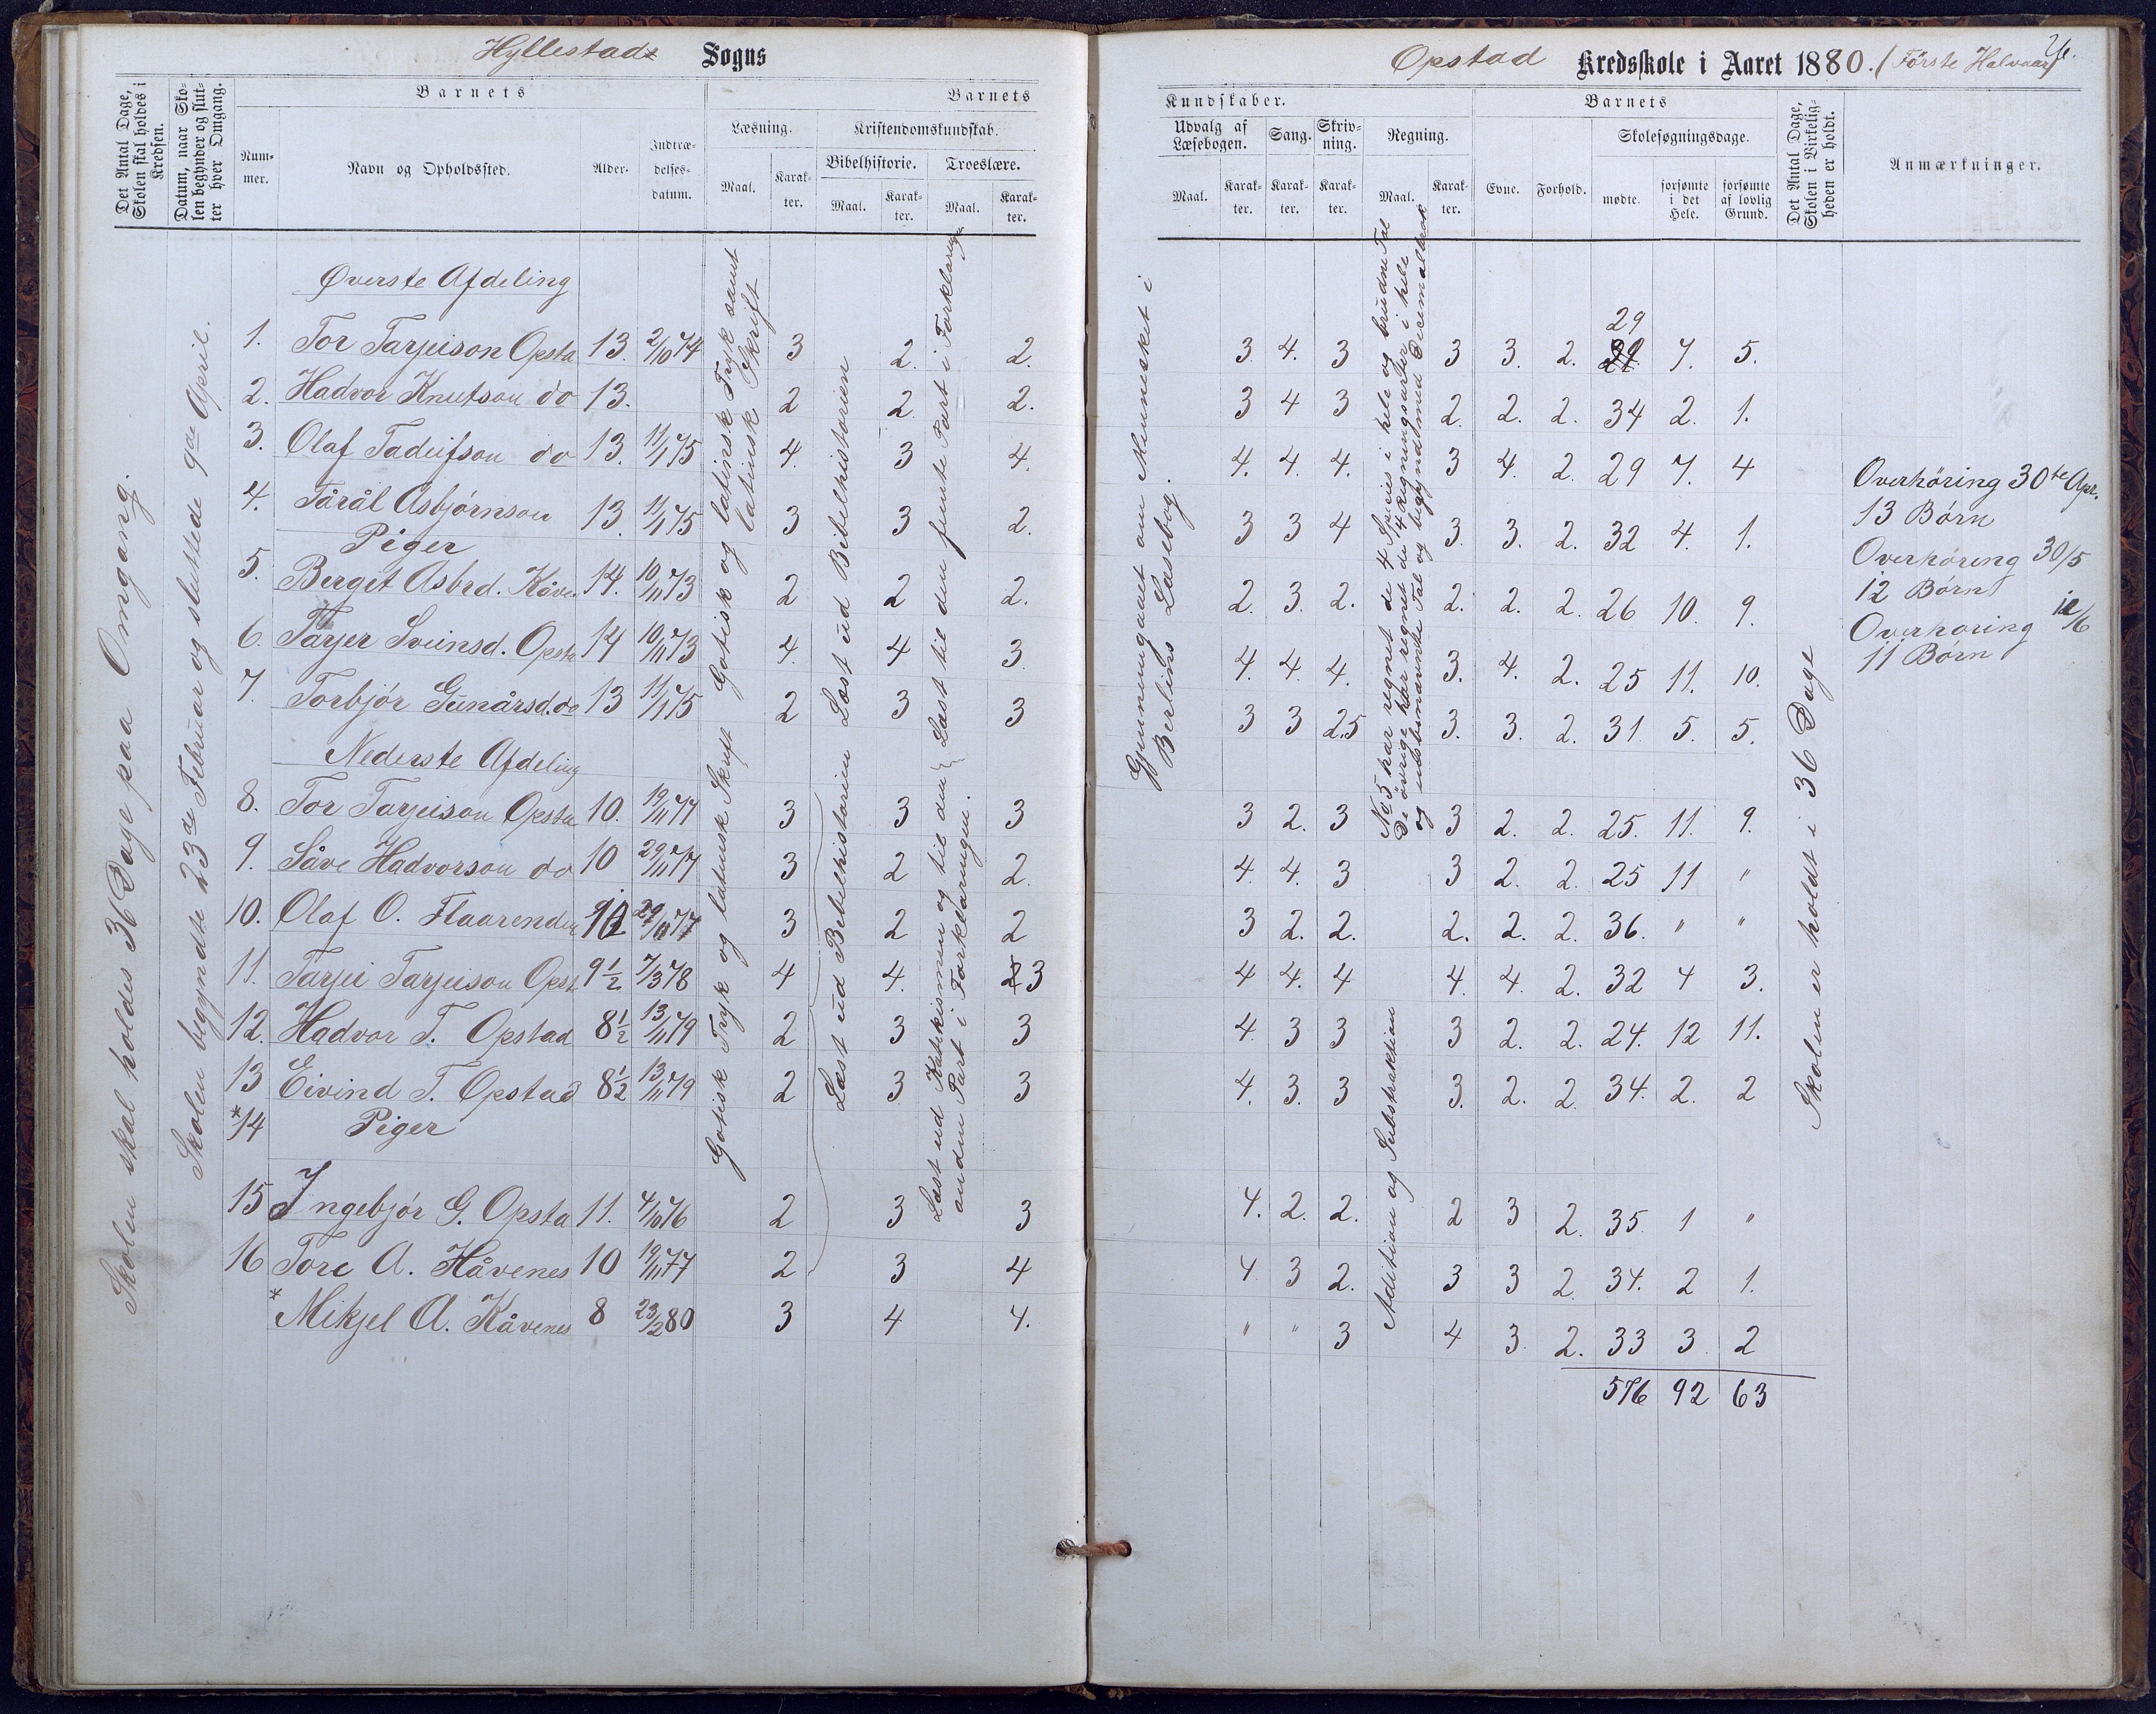 Hyllestads Sogns
Det Antal Dage, Skolen skal holdes i Kredsen.
Datum, naar Skolen begynder og slutter hver Omgang.
Barnets
Nummer.
Navn og Opholdssted.
Alder.
Indtrædelsesdatum.
Barnets
Læsning.
Maal.
Karakter.
Kristendomskundskab.
Bibelhistorie.
Maal.
Karakter.
Troeslære.
Maal.
Karakter.
Skolen skal holdes 36 Dage paa Omgang.
Skolen begyndte 23de Februar og sluttede 9de April.
Øverste Afdeling
1. Tor Tarjeison Opsta 13. 2/10 74 3 2. 2.
2. Hadvor Knutson do 13. 2 2 2.
3. Olaf Tadeifson do 13. 11/1 75 4. 3 4.
4. Tårål Asbjørnson 13 11/1 75 3 3 2.
Piger
5. Bergit Asbrd. Kåve 14. 10/11 73 2 2 2.
6. Tarjer Sveinsd. Opsta 14 10/11 73 4. 4 3
7. Torbjór Gunårsd. do 13 11/1 75 2 3 3
Nederste Afdeling
8. Tor Tarjeison Opsta 10. 19/11 77 3 3 3
9. Såve Hadvorson do 10 29/11 77 3 2 2.
10. Olaf O. Flaarenden 10 29/11 77 3 2 2
11. Tarjei Tarjeison Opst 9½ 7/3 78 4 4. 3
12. Hadvor T. Opstad 8½ 13/11 79 2 3 3
13 Eivind T. Opstad 8½ 13/11 79 2 3 3
*14 Piger
15 Ingebjór G. Opsta 11. 4/10 76 2 3 3
16 Tore A. Håvenes 10 19/11 77 2 3 4
* Mikjel A. Kåvenes 8 23/2 80 3 4 4.
Gotisk og latinsk Tryk samt latinsk Skrift
Gotisk Tryk og latinsk Skrift
Læst ud Bibelhistorien
Læst ud Bibelhistorien
Læst til den femte Part i Forklaringen
Læst ud Katekismen og til den anden Part i Forklaringen.
Opstad Kredsskole i Aaret 1880. (Første Halvaar)
Kundskaber.
Udvalg af Læsebogen.
Maal.
Karakter.
Sang.
Karakter.
Skrivning.
Karakter.
Regning.
Maal.
Karakter.
Barnets
Evne.
Forhold.
Skolesøgningsdage.
mødte.
forsømte i det Hele.
forsømte af lovlig Grund.
Det Antal Dage, Skolen i Virkeligheden er holdt.
Anmærkninger.
Gjennemgaaet om Mennesket i Berlins Læsebog.
No 5 har regnet de 4 Species i hele og brudne Tal
De øvrige har regnet de 4 Regningsarter i hele og ubenævnte Tal og begyndt med Decimalbrøk
Addition og Substraktion
29
3. 4. 3 3 3. 2. 29 7. 5.
3 4 3 2. 2. 2. 34 2. 1.
4. 4. 4. 3 4. 2. 29 7. 4
3 3 4 3. 3. 2. 32 4. 1.
2. 3. 2. 2. 2. 2. 26 10. 9.
4. 4. 4. 3. 4. 2. 25 11. 10.
3 3 2.5 3. 3. 2. 31. 5. 5.
3 2. 3 3 2. 2. 25. 11. 9.
4. 4. 3 3 2. 2. 25 11 "
3 2. 2. 2. 2. 2. 36. " "
4 4. 4 4. 4. 2. 32 4 3.
4. 3 3 3 2. 2. 24. 12 11.
4. 3. 3 3. 2. 2. 34. 2. 2
4. 2. 2. 2 3 2. 35. 1 "
4 3 2. 3 3 2. 34. 2 1.
" " 3 4 3. 2. 33 3 2
576 92 63
Skolen er holdt i 36 Dage
Overhøring 30te Apr.
13 Børn
Overhøring 30/5
12 Børn
Overhøring 12/6
11 Børn